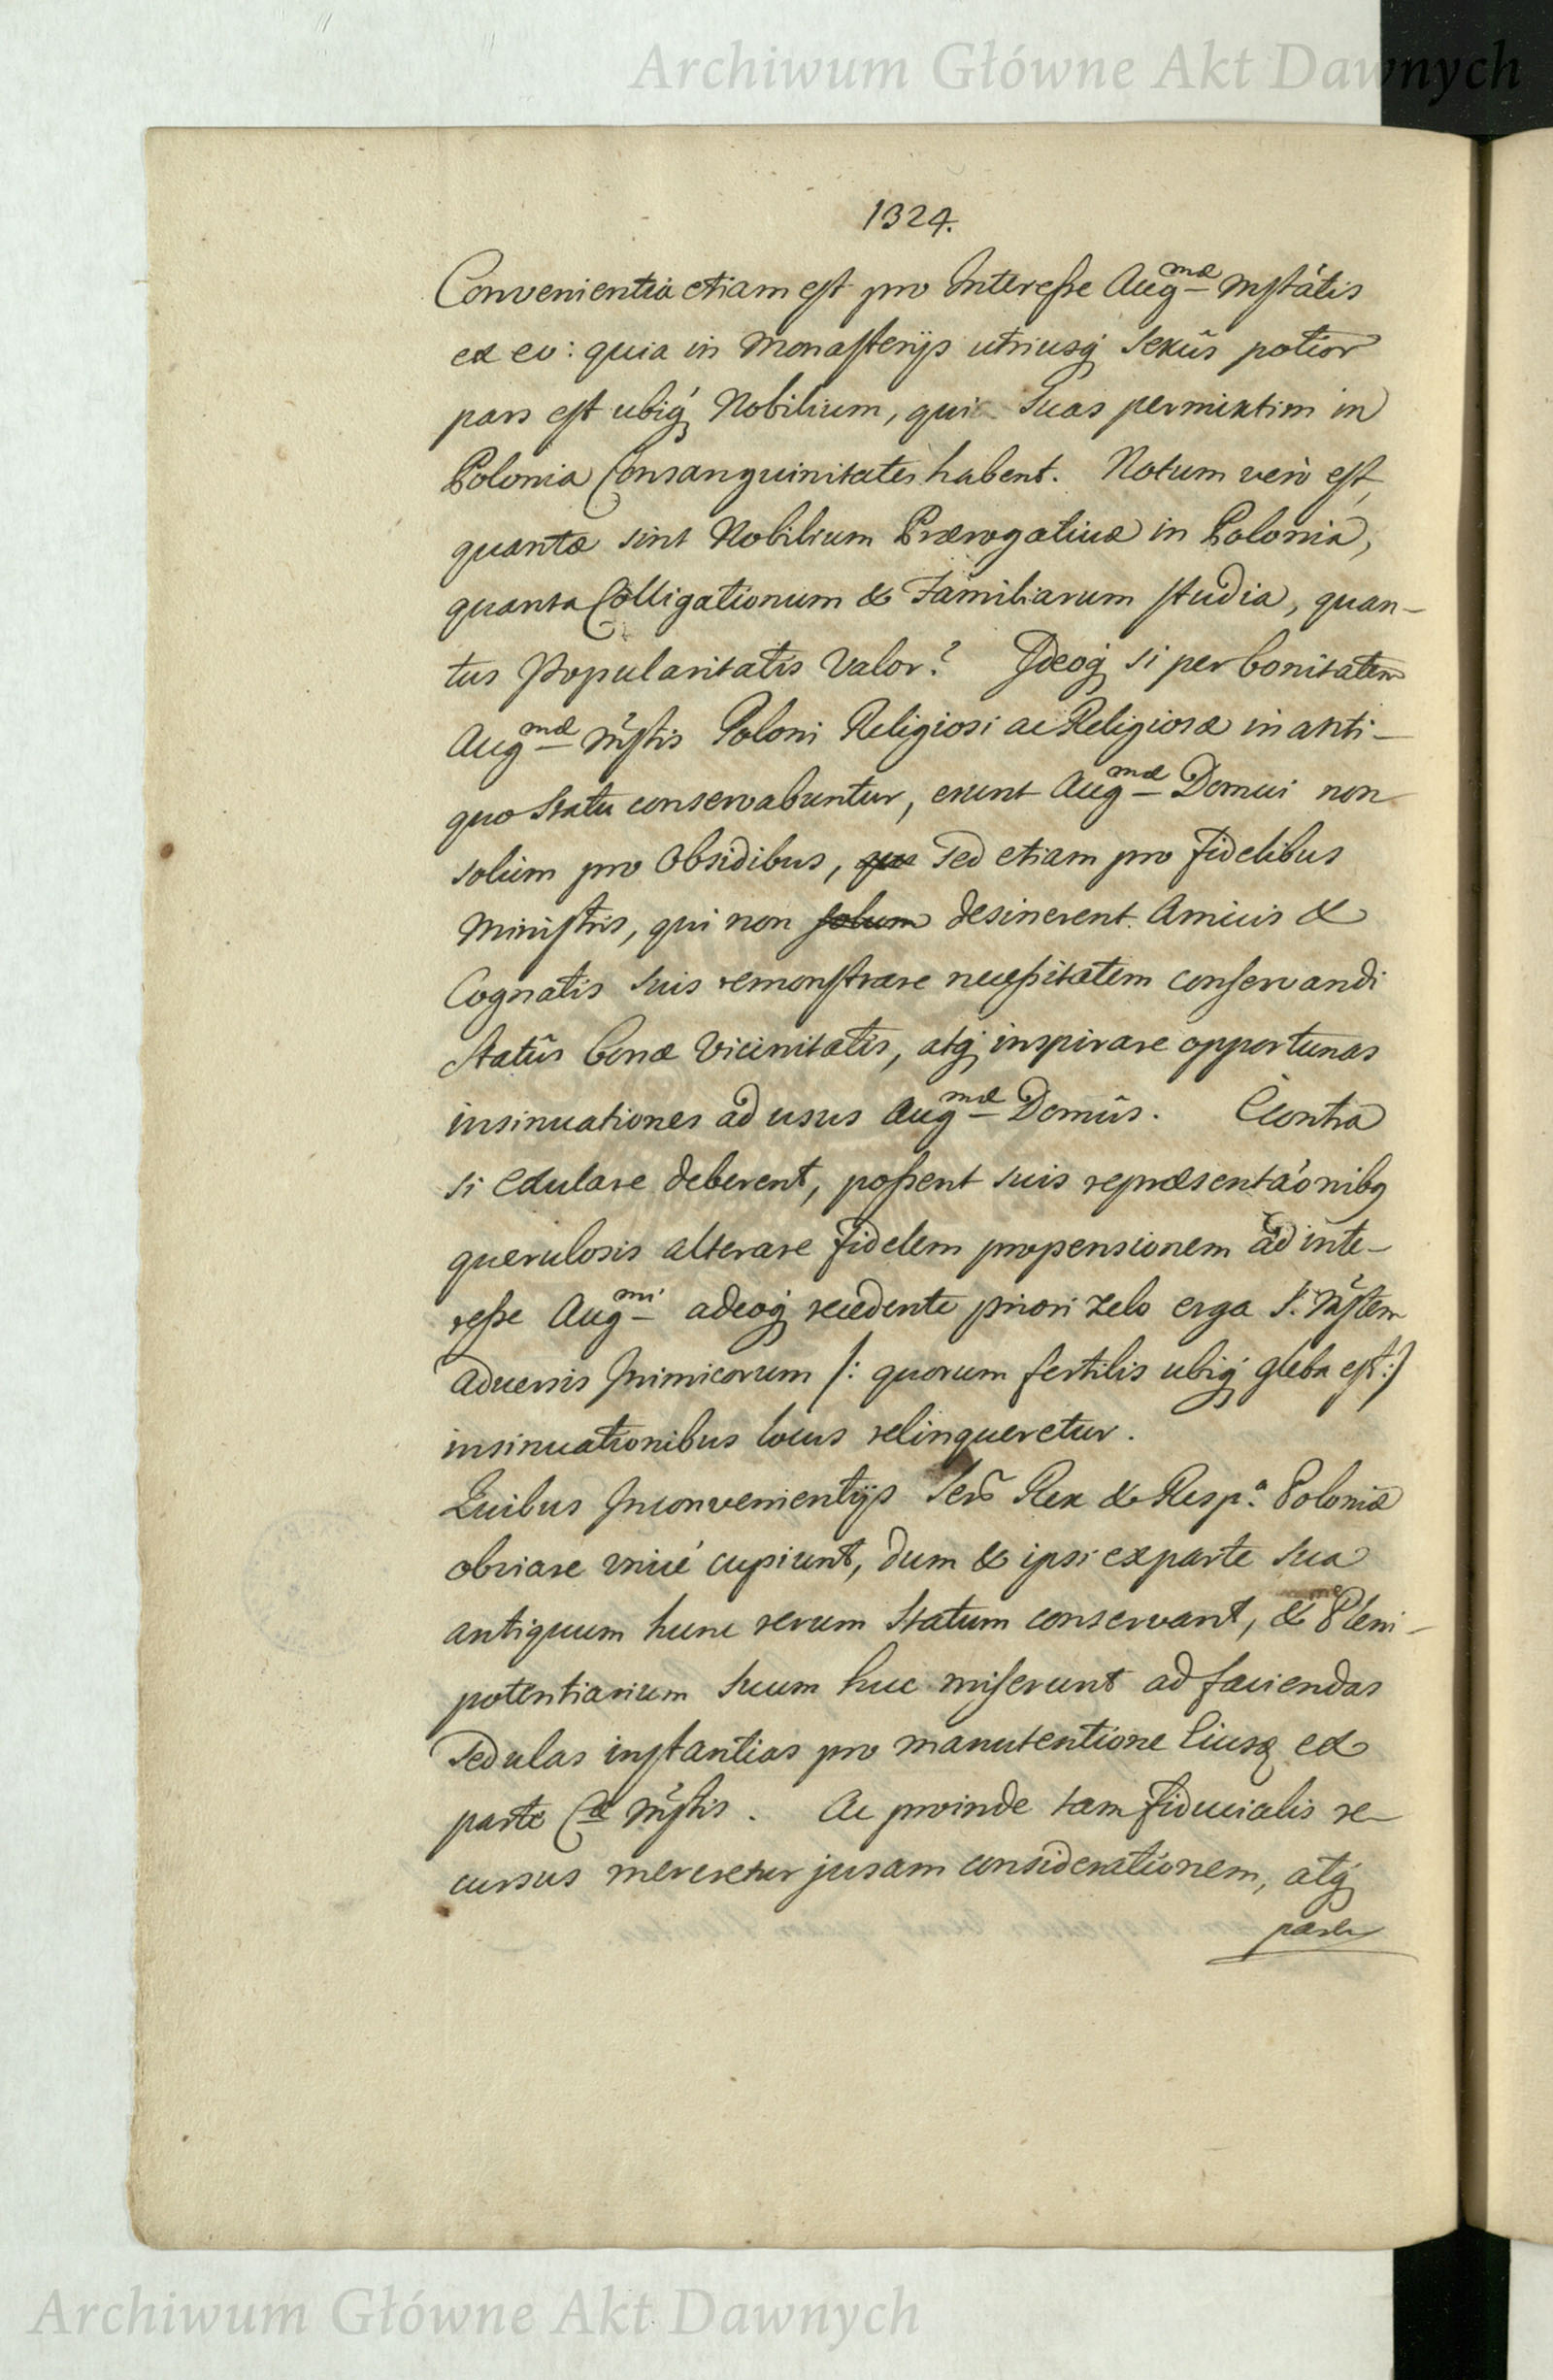 Archiwum Główne Akt Dawnych
1324.
Convenientia etiam est pro Interesse Augmæ Mstátis
ex eo: quia in Monasterijs utriusq́ sexûs potior
pars est ubiq́ Nobilium, qui suas permixtim in
Polonia Consanguinitates habent. Notum verò est,
quantæ sint Nobilium Prærogativæ in Polonia,
quanta Colligationum & Familiarum studia, quan-
tus Popularitatis Valor? Ideoq́ si per bonitatem
Augmæ Mstis Poloni Religiosi ac Religiosæ in anti-
quo Statu conservabuntur, erunt Augmæ Domui non
solùm pro Obsidibus, sed etiam pro fidelibus
Ministris, qui non solum desinerent Amicis &
Cognatis suis remonstrare necessitatem conservandi
Statûs bonæ Vicinitatis, atq́ inspirare opportunas
insinuationes ad usus Augmæ Domûs. Econtra
si exulare deberent, possent suis repræsentaónibq
querulosis alterare fidelem propensionem ad inte-
resse Augmi adeoq́ recedente priori zelo erga S. Mstem
adversis Inimicorum /: quorum fertilis ubiq́ gleba est :/
insinuationibus locus relinqueretur.
Quibus Inconvenientijs Sers Rex & Resp.a Poloniæ
obviare unicé cupiunt, dum & ipsi ex parte sua
antiquum hunc rerum Statum conservant, & Pleni-
potentiarium suum huc miserunt ad faciendas
sedulas instantias pro manutentione Eiusq ex
parte Cæ Mstis. Ac proinde tam fiducialis re-
cursus mereretur jusam considerationem, atq́
Archiwum Główne Akt Dawnych